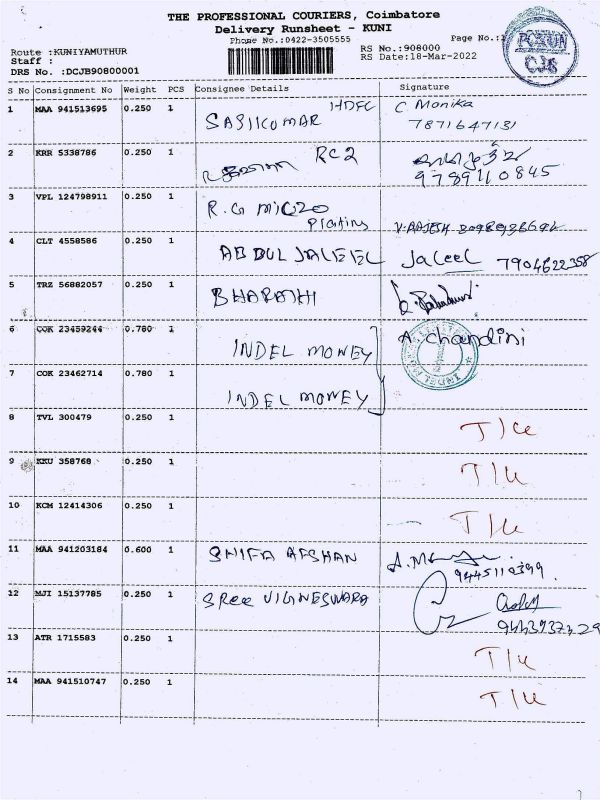 THE PROFESSIONAL COURIERS, Coimbatore
Delivery Runsheet - KUNI
Phone No.:0422-3505555
Page No.:1
Route :KUNIYAMUTHUR
RS No.:908000
Staff :
RS Date:18-Mar-2022
DRS No. :DCJB90800001
POKUN
CJB
S No Consignment No Weight PCS Consignee Details Signature
1 MAA 941513695 0.250 1 SASIKUMAR HDFC C Monika
7871647131
2 KRR 5338786 0.250 1 RC2
9789110845
3 VPL 124798911 0.250 1 R.G MICRO
Plating
4 CLT 4558586 0.250 1 ABDUL JALEEL Jaleel 7904622358
5 TRZ 56882057 0.250 1 BHARATHI
6 COK 23459244 0.780 1 INDEL MONEY A. Chandini
7 COK 23462714 0.780 1 INDEL MONEY
8 TVL 300479 0.250 1
9 KKU 358768 0.250 1
10 KCM 12414306 0.250 1
11 MAA 941203184 0.600 1 SHIFA AFSHAN
9445110399
12 MJI 15137785 0.250 1 SREE VIGNESWARA
13 ATR 1715583 0.250 1
14 MAA 941510747 0.250 1